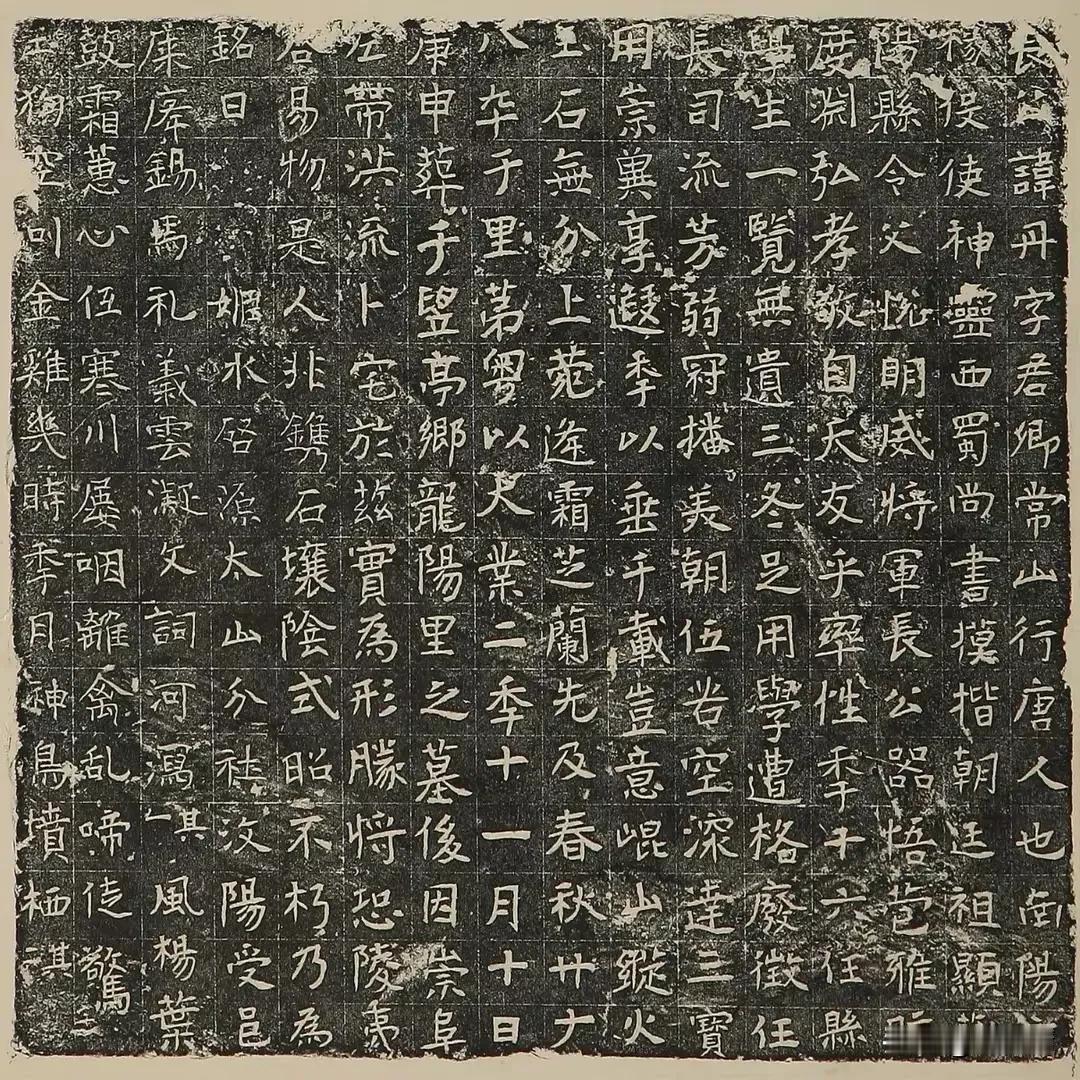 長公諱丹字君卿常山行唐人也南陽
穆侯使神靈西蜀尚書摸揩朝廷祖顯
陽縣令父悦明威將軍長公器悟苞雅
度淵弘孝敬自天友乎率性年十六任縣
學生一覽無遺三冬足用學遭格廢徵任
長司流芳弱冠播美朝伍岩空深達三寶
用崇冀享遐年以垂千載豈意崐山縱火
玉石無分上菀逢霜芝蘭先及春秋廿六
八年千里第粵以大業二年十一月十日
庚申葬于豎亭鄉龍陽里之墓後因崇阜
左帶洪流卜宅於茲實為形勝將恐陵夷
谷易物是人非鐫石壤陰式昭不朽乃為
銘曰 媚水啓源太山分祉汶陽受邑
庠錫馬礼義雲凝文詞河瀉其一風楊葉
鼓霜蕙心伍寒川屡咽離禽乱啼徒驚其二
狗空刻金雞幾時年月神鳥墳栖其